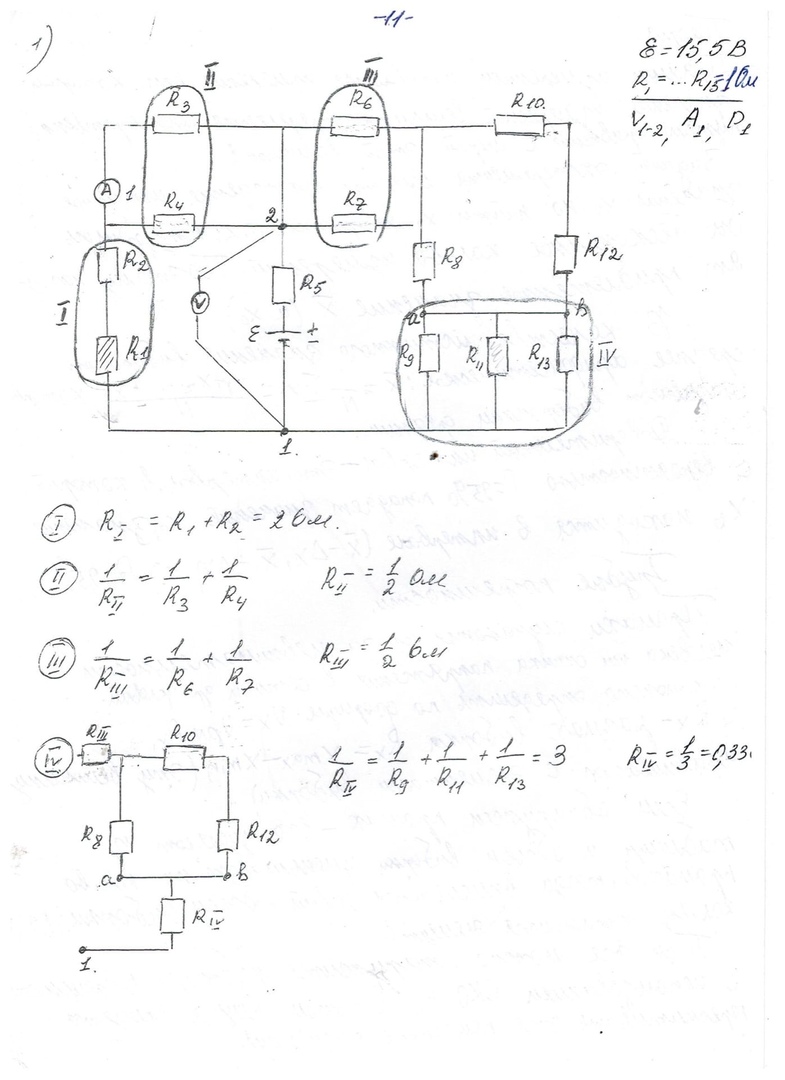 -11-
1)
ℰ = 15,5 В
R₁ = ... R₁₃ = 1 Ом
V₁₋₂, A₁, P₁
II
III
R3
R6
R10
A 1
R4
2
R7
R2
R5
R8
R12
I
V
ℰ
±
a
b
R1
R9
R11
R13
IV
1.
I R_I = R₁ + R₂ = 2 Ом.
II 1/R_II = 1/R₃ + 1/R₄ R_II = 1/2 Ом
III 1/R_III = 1/R₆ + 1/R₇ R_III = 1/2 Ом
IV R_III R10 1/R_IV = 1/R₉ + 1/R₁₁ + 1/R₁₃ = 3 R_IV = 1/3 = 0,33.
R8
R12
a
b
R_IV
1.